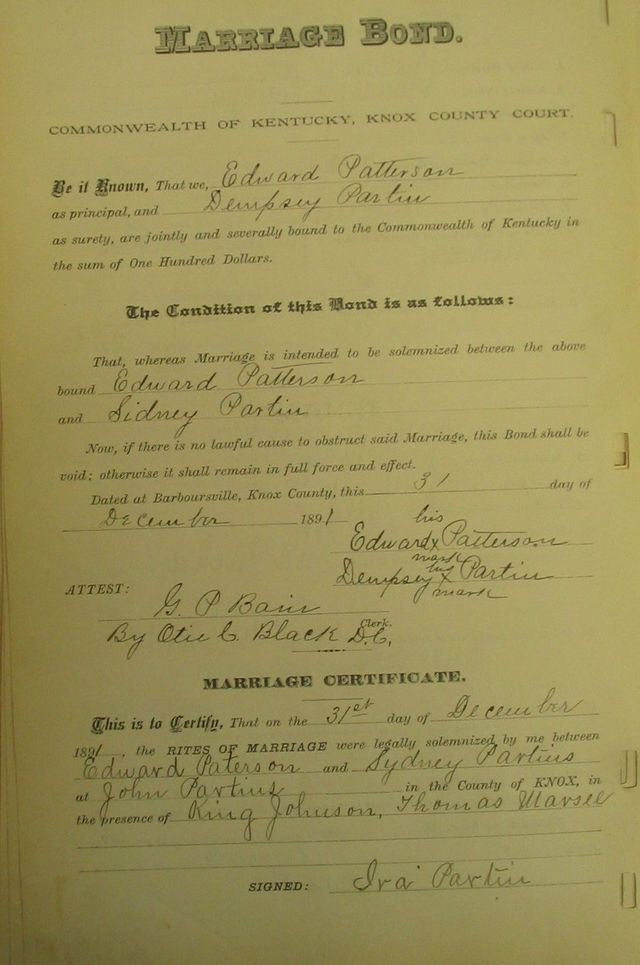 MARRIAGE BOND.
COMMONWEALTH OF KENTUCKY, KNOX COUNTY COURT.
Be it Known, That we, Edward Patterson
as principal, and Dempsey Partin
as surety, are jointly and severally bound to the Commonwealth of Kentucky in
the sum of One Hundred Dollars.
The Condition of this Bond is as follows:
That, whereas Marriage is intended to be solemnized between the above
bound Edward Patterson
and Sidney Partin
Now, if there is no lawful cause to obstruct said Marriage, this Bond shall be
void; otherwise it shall remain in full force and effect.
Dated at Barboursville, Knox County, this 31 day of
December 1891
his
Edward x Patterson
mark
his
Dempsey x Partin
mark
ATTEST:
G. P. Bain
Clerk.
By Otie C. Black D.C,
MARRIAGE CERTIFICATE.
This is to Certify, That on the 31st day of December
1891. the RITES OF MARRIAGE were legally solemnized by me between
Edward Paterson and Sydney Partins
at John Partins in the County of KNOX, in
the presence of King Johnson, Thomas Marsee
SIGNED: Ira Partin